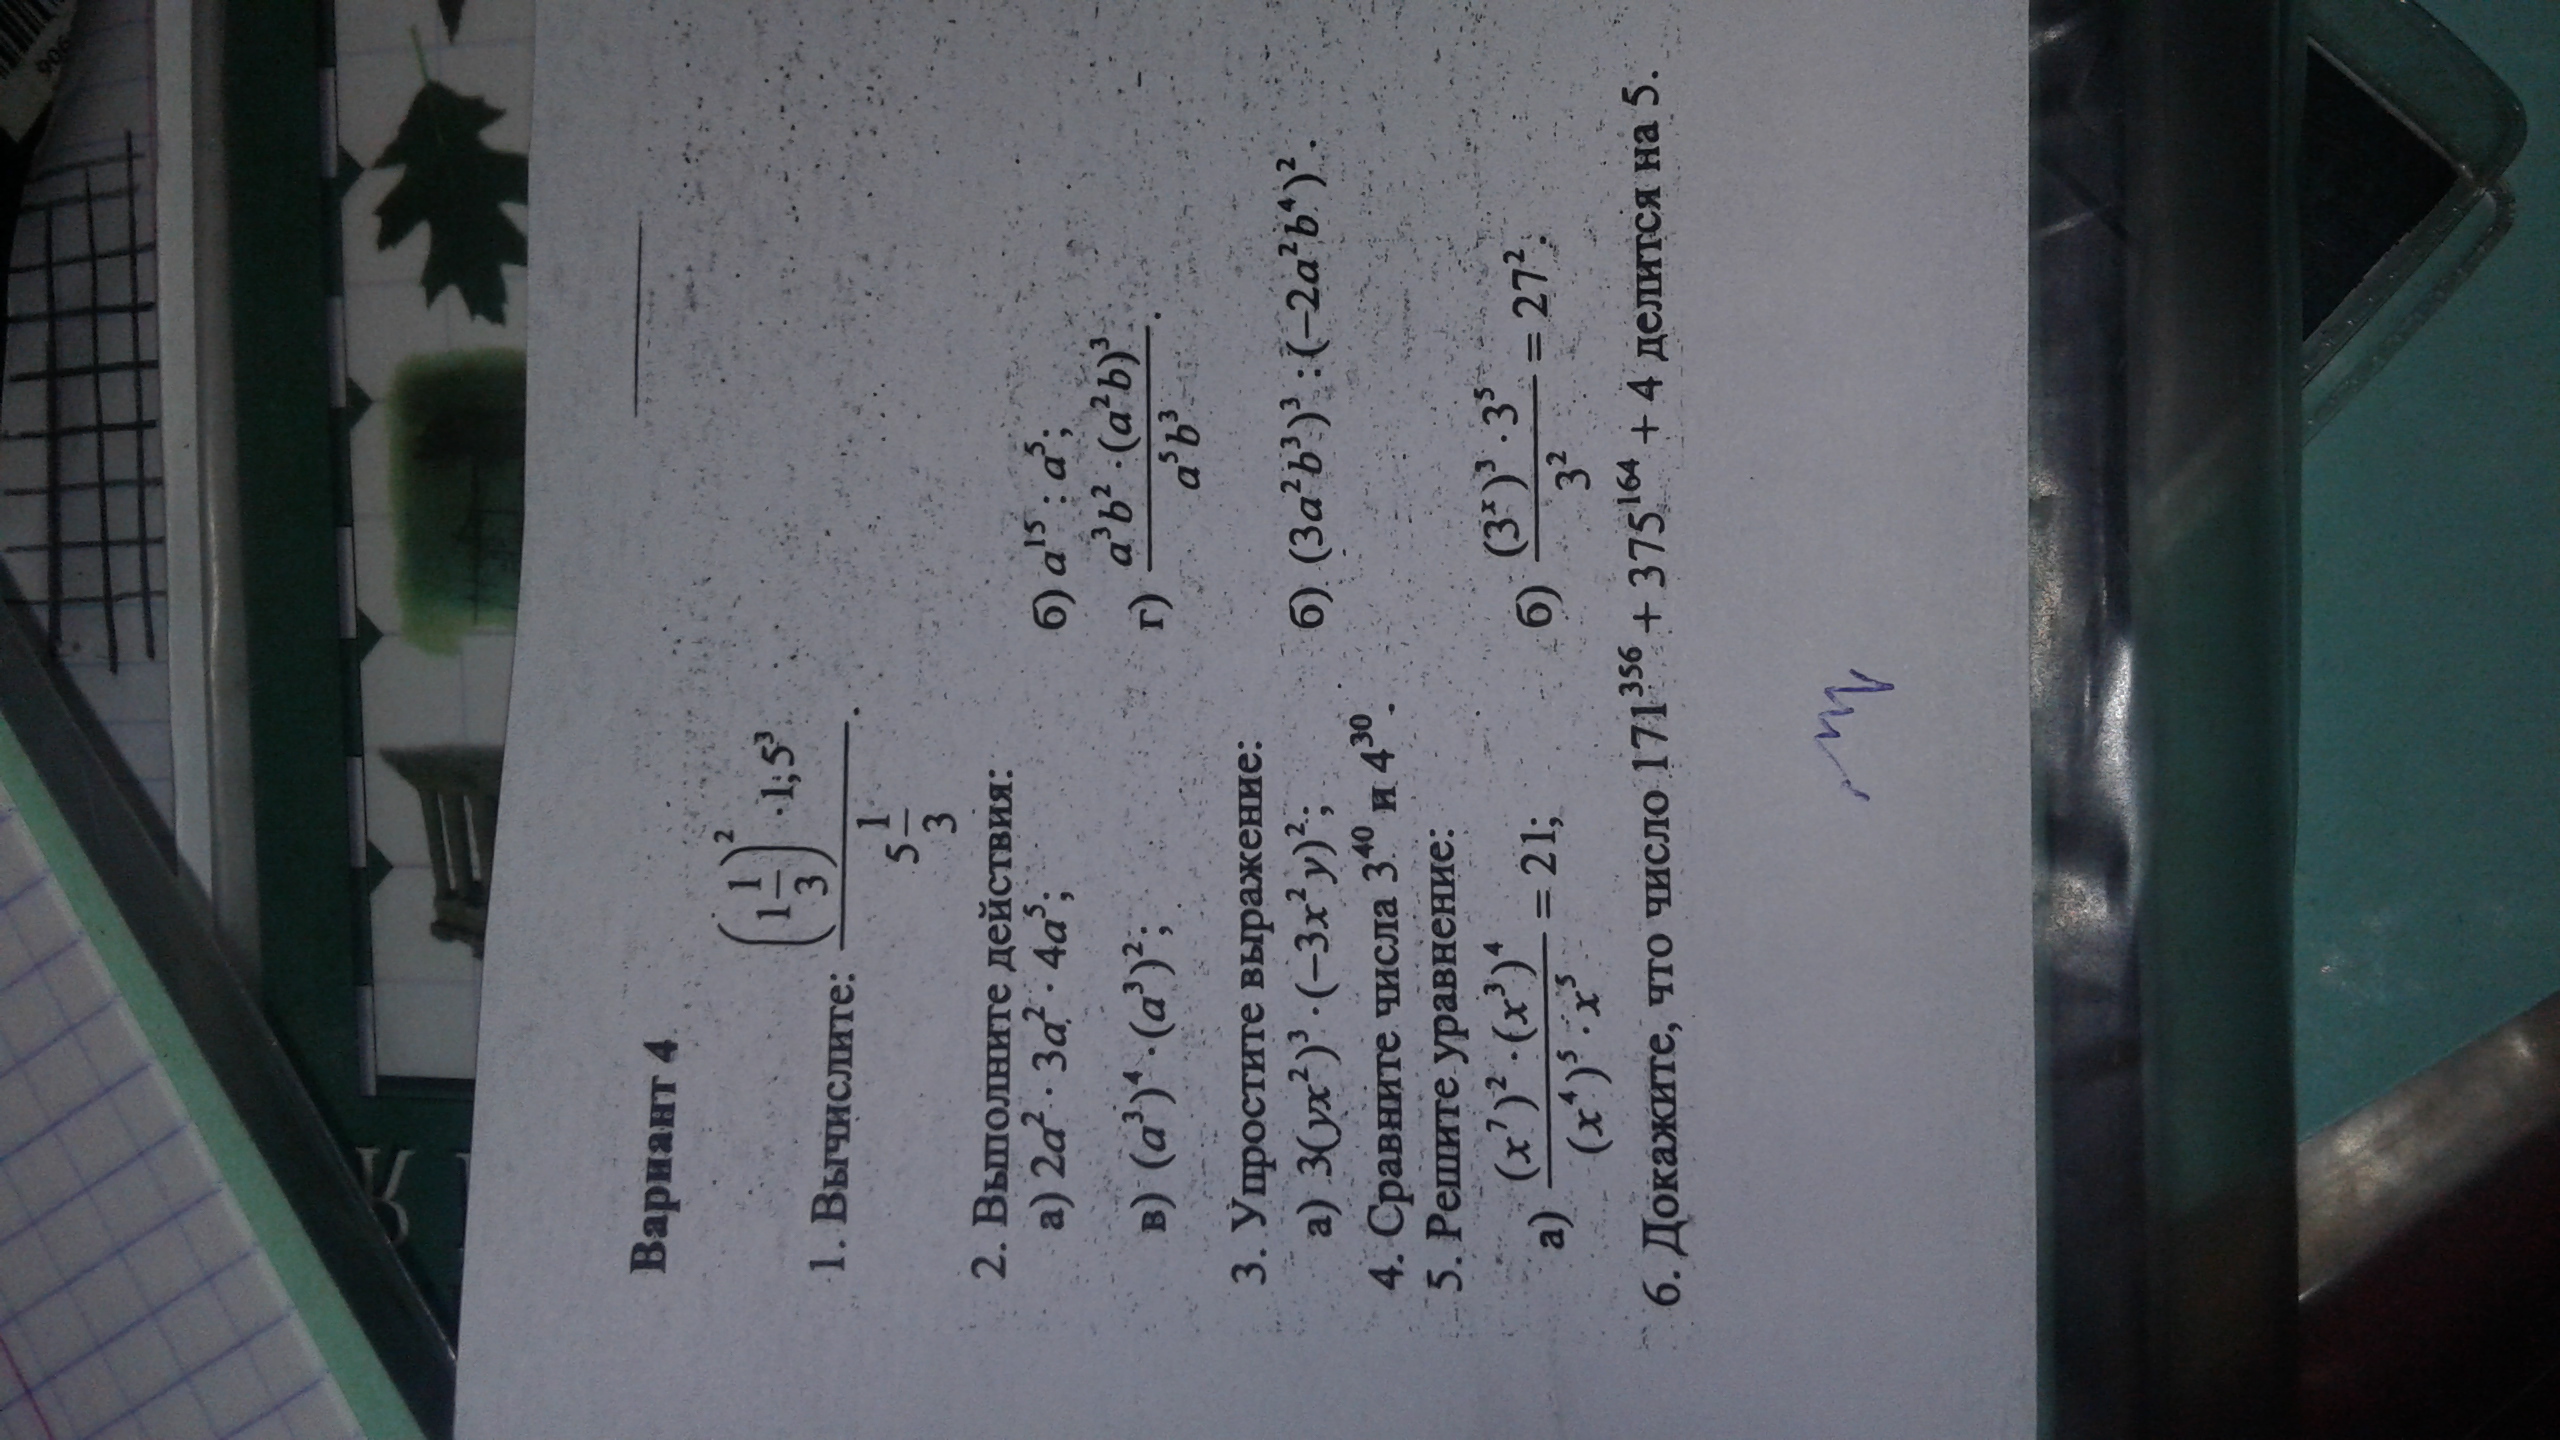 Вариант 4
1. Вычислите: \frac{\left(1\frac{1}{3}\right)^2 \cdot 1,5^3}{5\frac{1}{3}}.
2. Выполните действия:
а) 2a² · 3a² · 4a⁵; б) a¹⁵ : a⁵;
в) (a³)⁴ · (a³)²; г) \frac{a^3b^2 \cdot (a^2b)^3}{a^5b^3}.
3. Упростите выражение:
а) 3(yx²)³ · (−3x²y)²; б) (3a²b³)³ : (−2a²b⁴)².
4. Сравните числа 3⁴⁰ и 4³⁰.
5. Решите уравнение:
а) \frac{(x^7)^2 \cdot (x^3)^4}{(x^4)^5 \cdot x^5} = 21; б) \frac{(3^x)^3 \cdot 3^5}{3^2} = 27².
6. Докажите, что число 171³⁵⁶ + 375¹⁶⁴ + 4 делится на 5.